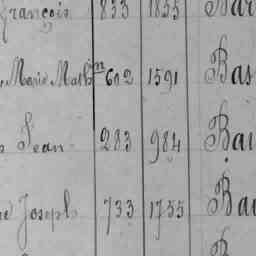 françois 833 1855 Bar
Marie Math 602 1591 Bas
Jean 283 984 Bau
Joseph 733 1755 Bau